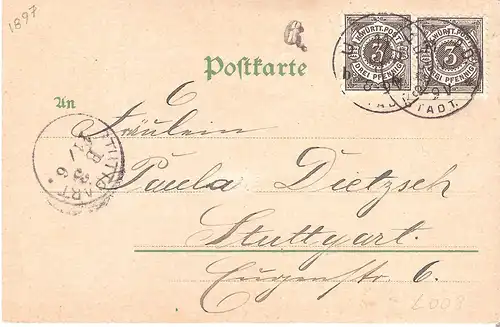 1897
K. WÜRTT. POST
3
DREI PFENNIG
K. WÜRTT. POST
3
DREI PFENNIG
Postkarte
An
Fräulein
Paula Dietzsch
Stuttgart.
Eugenstr. 6.
STUTTGART